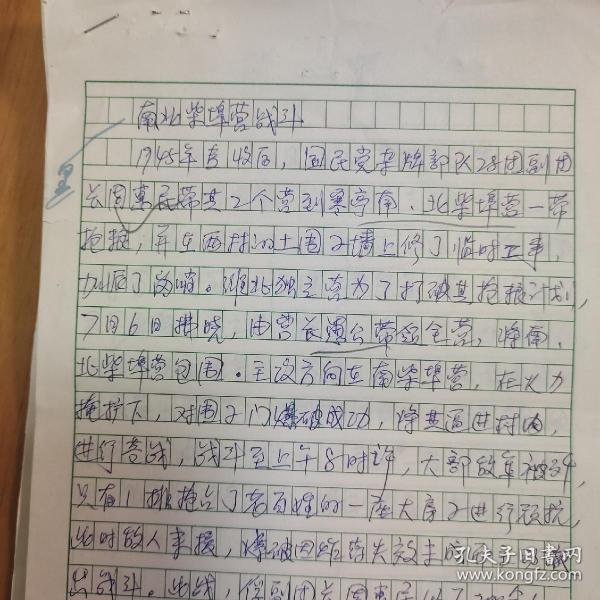 南北柴埠营战斗
1945年麦收后，国民党杂牌部队28团副团
长周惠民带其2个营到寒亭南、北柴埠营一带
抢粮，并在两村的土围子墙上修了临时工事，
加派了岗哨。潍北独立营为了打破其抢粮计划，
7月6日拂晓，由营长 带领全营，将南、
北柴埠营包围。主攻方向在南柴埠营，在火力
掩护下，对围子门爆破成功，将其压进村内，
进行巷战，战斗至上午8时许，大部敌军被歼，
只有1排抢占了老百姓的一座大房子进行顽抗，
此时敌人来援，爆破因炸药失效未响
出战斗。此战，俘副团长周惠民以下
孔夫子旧书网
www.kongfz.com